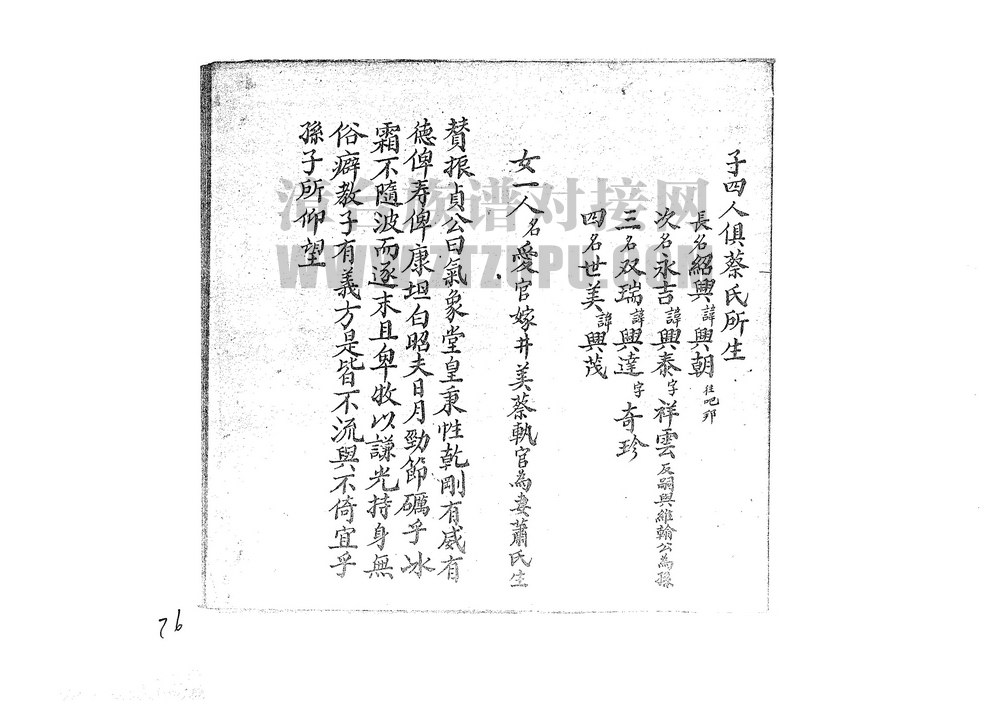 子四人俱蔡氏所生
長名紹興諱興朝往吧邦
次名永吉諱興泰字祥雲反嗣與維翰公為孫
三名双瑞諱興達字奇珍
四名世美諱興茂
女一人名愛官嫁井美蔡執官為妻蕭氏生
贊振貞公曰氣象堂皇秉性乾剛有威有
德俾寿俾康坦白昭夫日月勁節礪乎冰
霜不隨波而逐末且卑牧以謙光持身無
俗癖教子有義方是皆不流與不倚宜乎
孫子所仰望
台族谱对接网
WWW.ZTZUPU.COM
26